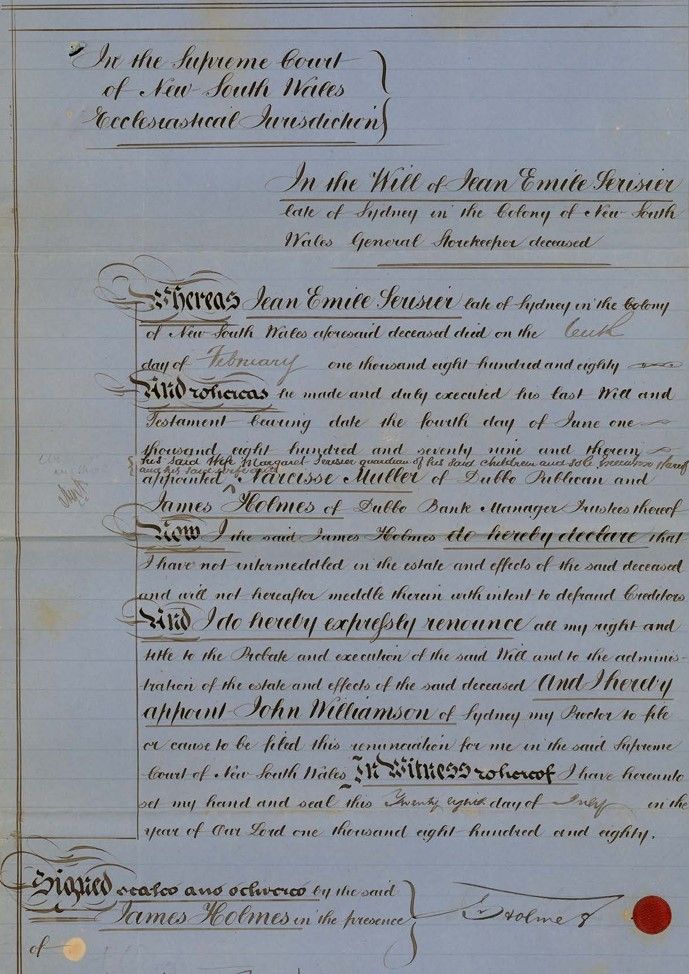 In the Supreme Court
of New South Wales
Ecclesiastical Jurisdiction
In the Will of Jean Emile Serisier
late of Sydney in the Colony of New South
Wales General Storekeeper deceased
Whereas Jean Emile Serisier late of Sydney in the Colony
of New South Wales aforesaid deceased died on the tenth
day of February one thousand eight hundred and eighty
And whereas he made and duly executed his last Will and
Testament bearing date the fourth day of June one
thousand eight hundred and seventy nine and therein
his said Wife Margaret Serisier guardian of his said children and sole executrix thereof
and his said
appointed ^ Narcisse Muller of Dubbo Publican and
James Holmes of Dubbo Bank Manager Trustees thereof
Now I the said James Holmes do hereby declare that
I have not intermeddled in the estate and effects of the said deceased
and will not hereafter meddle therein with intent to defraud Creditors
And I do hereby expressly renounce all my right and
title to the Probate and execution of the said Will and to the adminis-
tration of the estate and effects of the said deceased And I hereby
appoint John Williamson of Sydney my Proctor to file
or cause to be filed this renunciation for me in the said Supreme
Court of New South Wales In Witness whereof I have hereunto
set my hand and seal this Twenty eighth day of July in the
year of Our Lord one thousand eight hundred and eighty.
Signed sealed and delivered by the said
James Holmes in the presence
of
Holmes